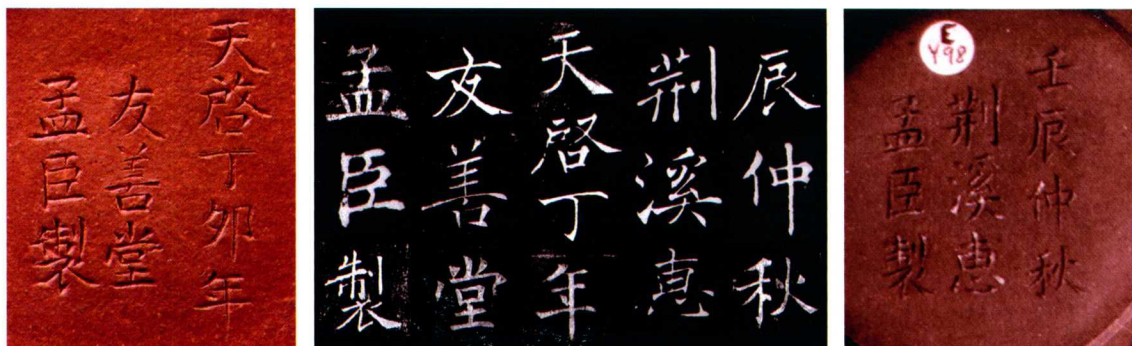 天啓丁卯年
友善堂
孟臣製
辰仲秋
荆溪惠
天啓丁年
友善堂
孟臣製
E
Y98
壬辰仲秋
荆溪惠
孟臣製